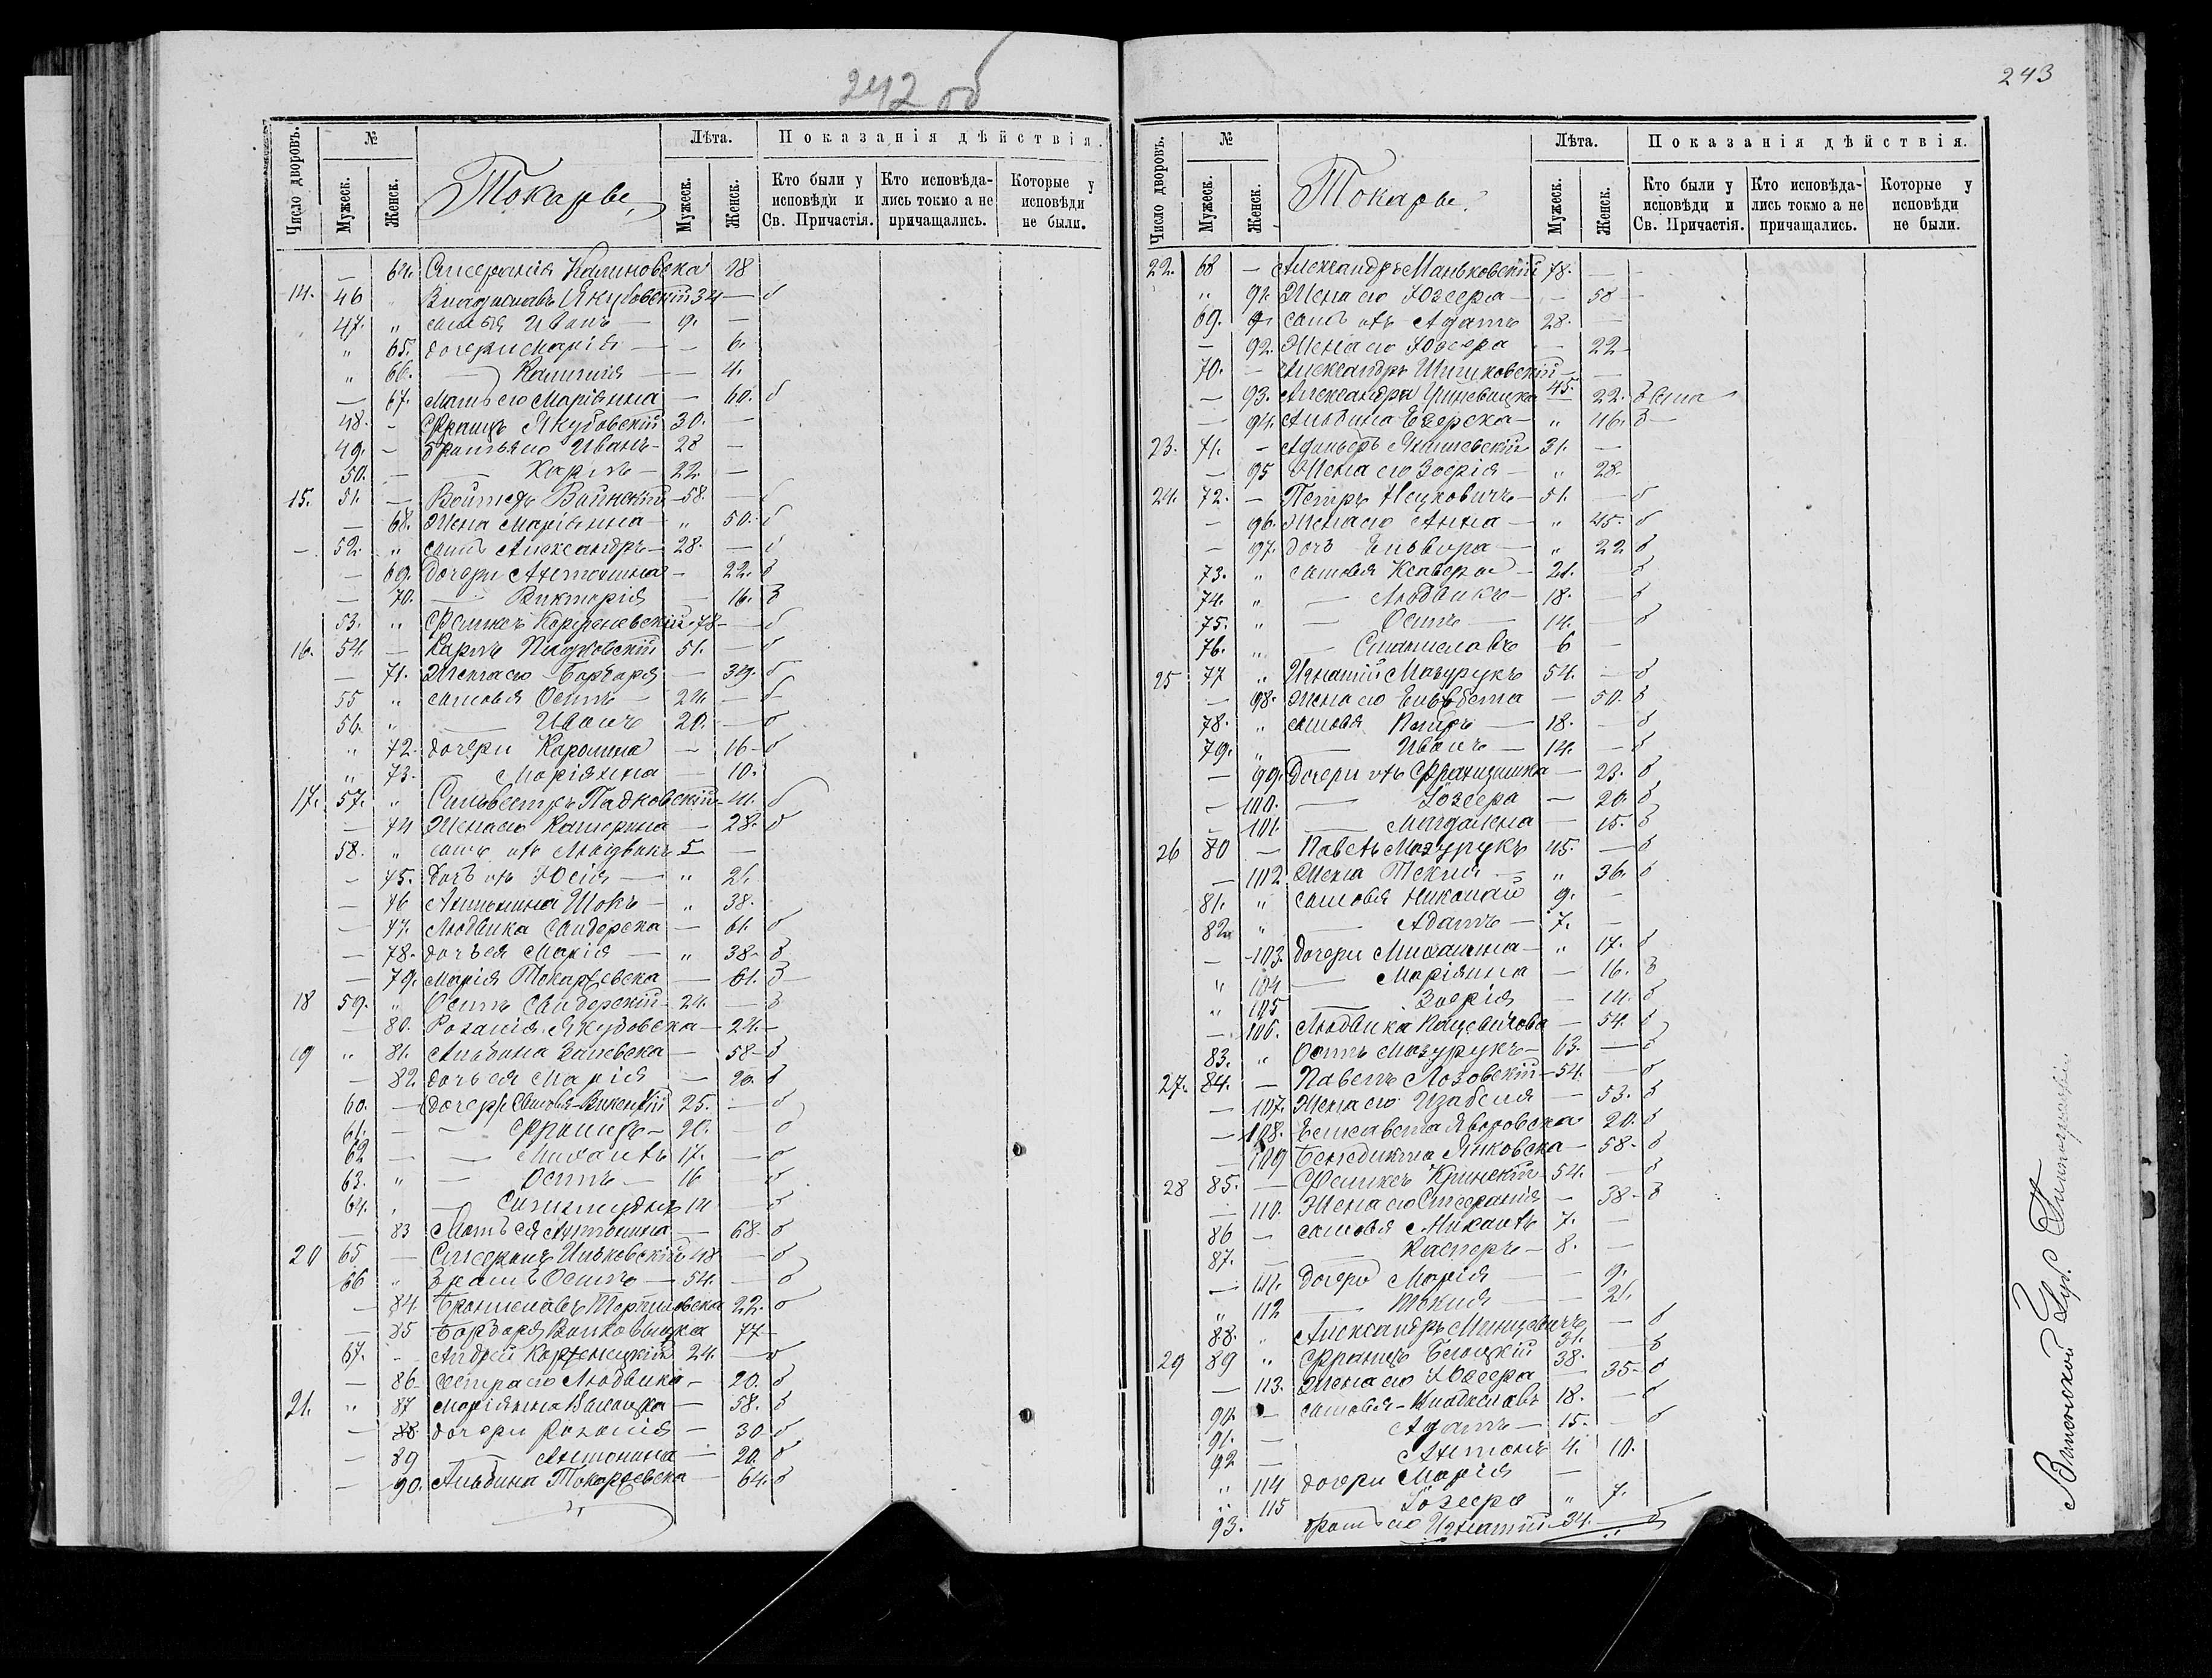 242 об
Число дворовъ. № Мужеск. Женск. Токары Лѣта. Мужеск. Женск. Показанія дѣйствія.
Кто были у исповѣди и Св. Причастія. Кто исповѣдались токмо а не причащались. Которые у исповѣди не были.
— 64. Стефанія Калиновска 18
14. 46 " Владиславъ Якубовскій 34 — б
47. " сыновья Иванъ — 9. —
" 65. дочери Марія — — 6.
" 66. — Калинія — 4.
— 67. Мать его Маріанна — 60. б
48. - Францъ Якубовскій 30. —
49. - братья его Иванъ - 28 —
50. — — Карлъ — 22. —
15. 51. — Войтехъ 58. — б
— 68. Жена Маріанна — " 50. б
— 52. " сынъ Александръ — 28. — б
— 69. дочери Антонина — 22. б
— 70. — Викторія — 16. б
53. " Феликсъ 78 — б
16. 54. — Карлъ 51. — б
— 71. Жена его Барбара — 39. б
55 " сыновья Осипъ — 24. — б
56. " — Иванъ 20. — б
" 72. дочери Каролина — 16 - б
" 73. — Маріанна — 10.
17. 57. " Сильвестръ Падковскій 41. б
— 74 Жена его Катерина — 28. б
58. " сынъ ихъ Людвикъ 5 —
— 75. дочь ихъ Юлія — " 2.
— 76 Шокъ — " 38.
— 77. Людвика Сандерска — 61. б
— 78. дочь ея Марія — " 38 - б
— 79. Марія Токаржевска — 61. б
18 59. " Осипъ Сандерскій - 24. — б
— 80. Розалія Якубовска — 24. -
19 " 81. Альбина Залевска — 58 - б
— 82. дочь ея Марія — 20. б
60. — Сыновья - Викентій 25. — б
61. — — Францъ - 20. — б
62 — — Михаилъ 17. — б
63. " — Осипъ — 16 б
64. " — Сигизмундъ 14 б
— 83 Мать ея Антонина — 68. б
20 65 — Стефанъ 48 — б
66 " Братъ Осипъ — 54. — б
— 84. 22. б
— 85 Барбара 77 -
67. - Андрей 24. — б
— 86 Сестра его Людвика — 20. б
21. " 87 Маріанна — 58. б
— 88 дочери Розалія — 30 б
— 89 — Антонина — 20 б
— 90. Альбина Токаржевска — 64. б
243
Число дворовъ. № Мужеск. Женск. Токары. Лѣта. Мужеск. Женск. Показанія дѣйствія.
Кто были у исповѣди и Св. Причастія. Кто исповѣдались токмо а не причащались. Которые у исповѣди не были.
22. 68 — Александръ Маньковскій 78. —
" 91. Жена его Юзефа — — 58 —
69. сынъ ихъ Адамъ 28. —
— 92. Жена его Юзефа — 22 -
70. — Александръ 45. —
— 93. Александра — 22.
— 94. Альбина Езерска — " 46. б —
23. 71. - 31. —
— 95 Жена его Зофія — " 28.
24. 72. - Петръ 51. — б
— 96. Жена его Анна — " 45. б
— 97. дочь Ельвира — " 22 б
73. " сыновья Ксаверы — 21. б
74. " — Людвикъ — 18. — б
75. " — Осипъ — 14. — б
76. " — Станиславъ 6 —
25 77 " Игнатій Мазурукъ 54. — б
— 98. Жена его Ельжбета — 50. б
78. " сыновья Петръ — 18. — б
79. " — Иванъ — 14. — б
— 99. Дочери ихъ Францишка — 23. б
— 100. — Юзефа — 20. б
— 101. — Магдалена — 15. б
26 80 — Павелъ Мазурукъ 45. — б
— 102 Жена Текля — " 36. б
81. " сыновья Николай 9. —
82 " — Адамъ — 7. —
— 103. дочери Михалина — " 17. б
" 104 — Маріанна — 16. б
" 105 — Зофія — 14. б
— 106. Людвика — 54. б
83. " Осипъ Мазурукъ — 63. — б
27. 84. — Павелъ Лозовскій — 54. — б
— 107. Жена его Изабеля — 53. б
— 108. Елисавета Яворовска 20. б
— 109 Бенедикта Янковска — 58 - б
28 85. — Феликсъ Крынскій 54. — б
— 110. Жена его Стефанія — 38 - б
86 — сыновья Михаилъ 7. —
87. — Касперъ — 8. —
— 111. дочери Марія — — 9.
" 112 — Текля — — 2.
88. " Александръ 31. — б
29 89 " Францъ Белоцкій 38. — б
— 113. Жена его Юзефа — 35 - б
90. — сыновья - Владиславъ 18. — б
91. — Адамъ — 15. — б
92 — Антонъ 4.
" 114 дочери Марія — 10.
" 115 Юзефа " 7.
93. братъ его Игнатій 34. — б
Виленской Губ. Типографіи